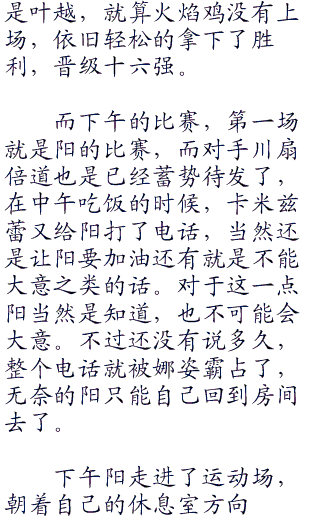 是叶越，就算火焰鸡没有上
场，依旧轻松的拿下了胜
利，晋级十六强。
而下午的比赛，第一场
就是阳的比赛，而对手川扇
倍道也是已经蓄势待发了，
在中午吃饭的时候，卡米兹
蕾又给阳打了电话，当然还
是让阳要加油还有就是不能
大意之类的话。对于这一点
阳当然是知道，也不可能会
大意。不过还没有说多久，
整个电话就被娜姿霸占了，
无奈的阳只能自己回到房间
去了。
下午阳走进了运动场，
朝着自己的休息室方向